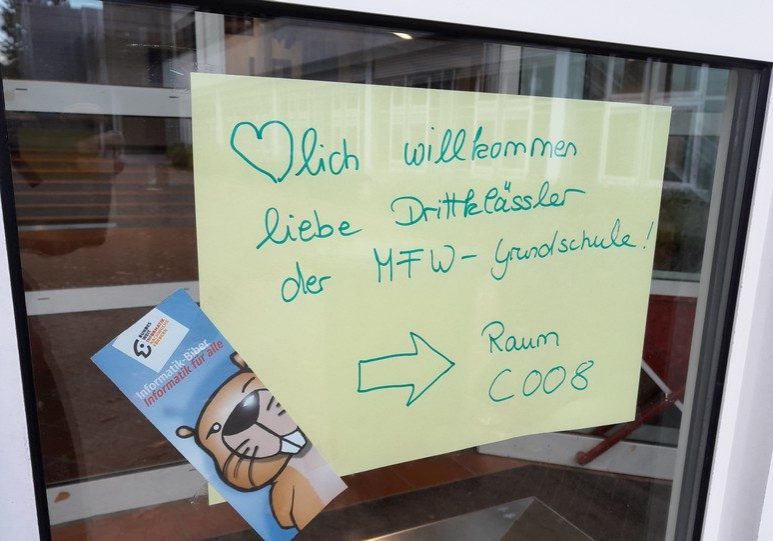 ♡lich willkommen
liebe Drittklässler
der MFW-Grundschule!
Raum
C008
BUNDES
WEIT
INFORMATIK
Informatik-Biber
Informatik für alle